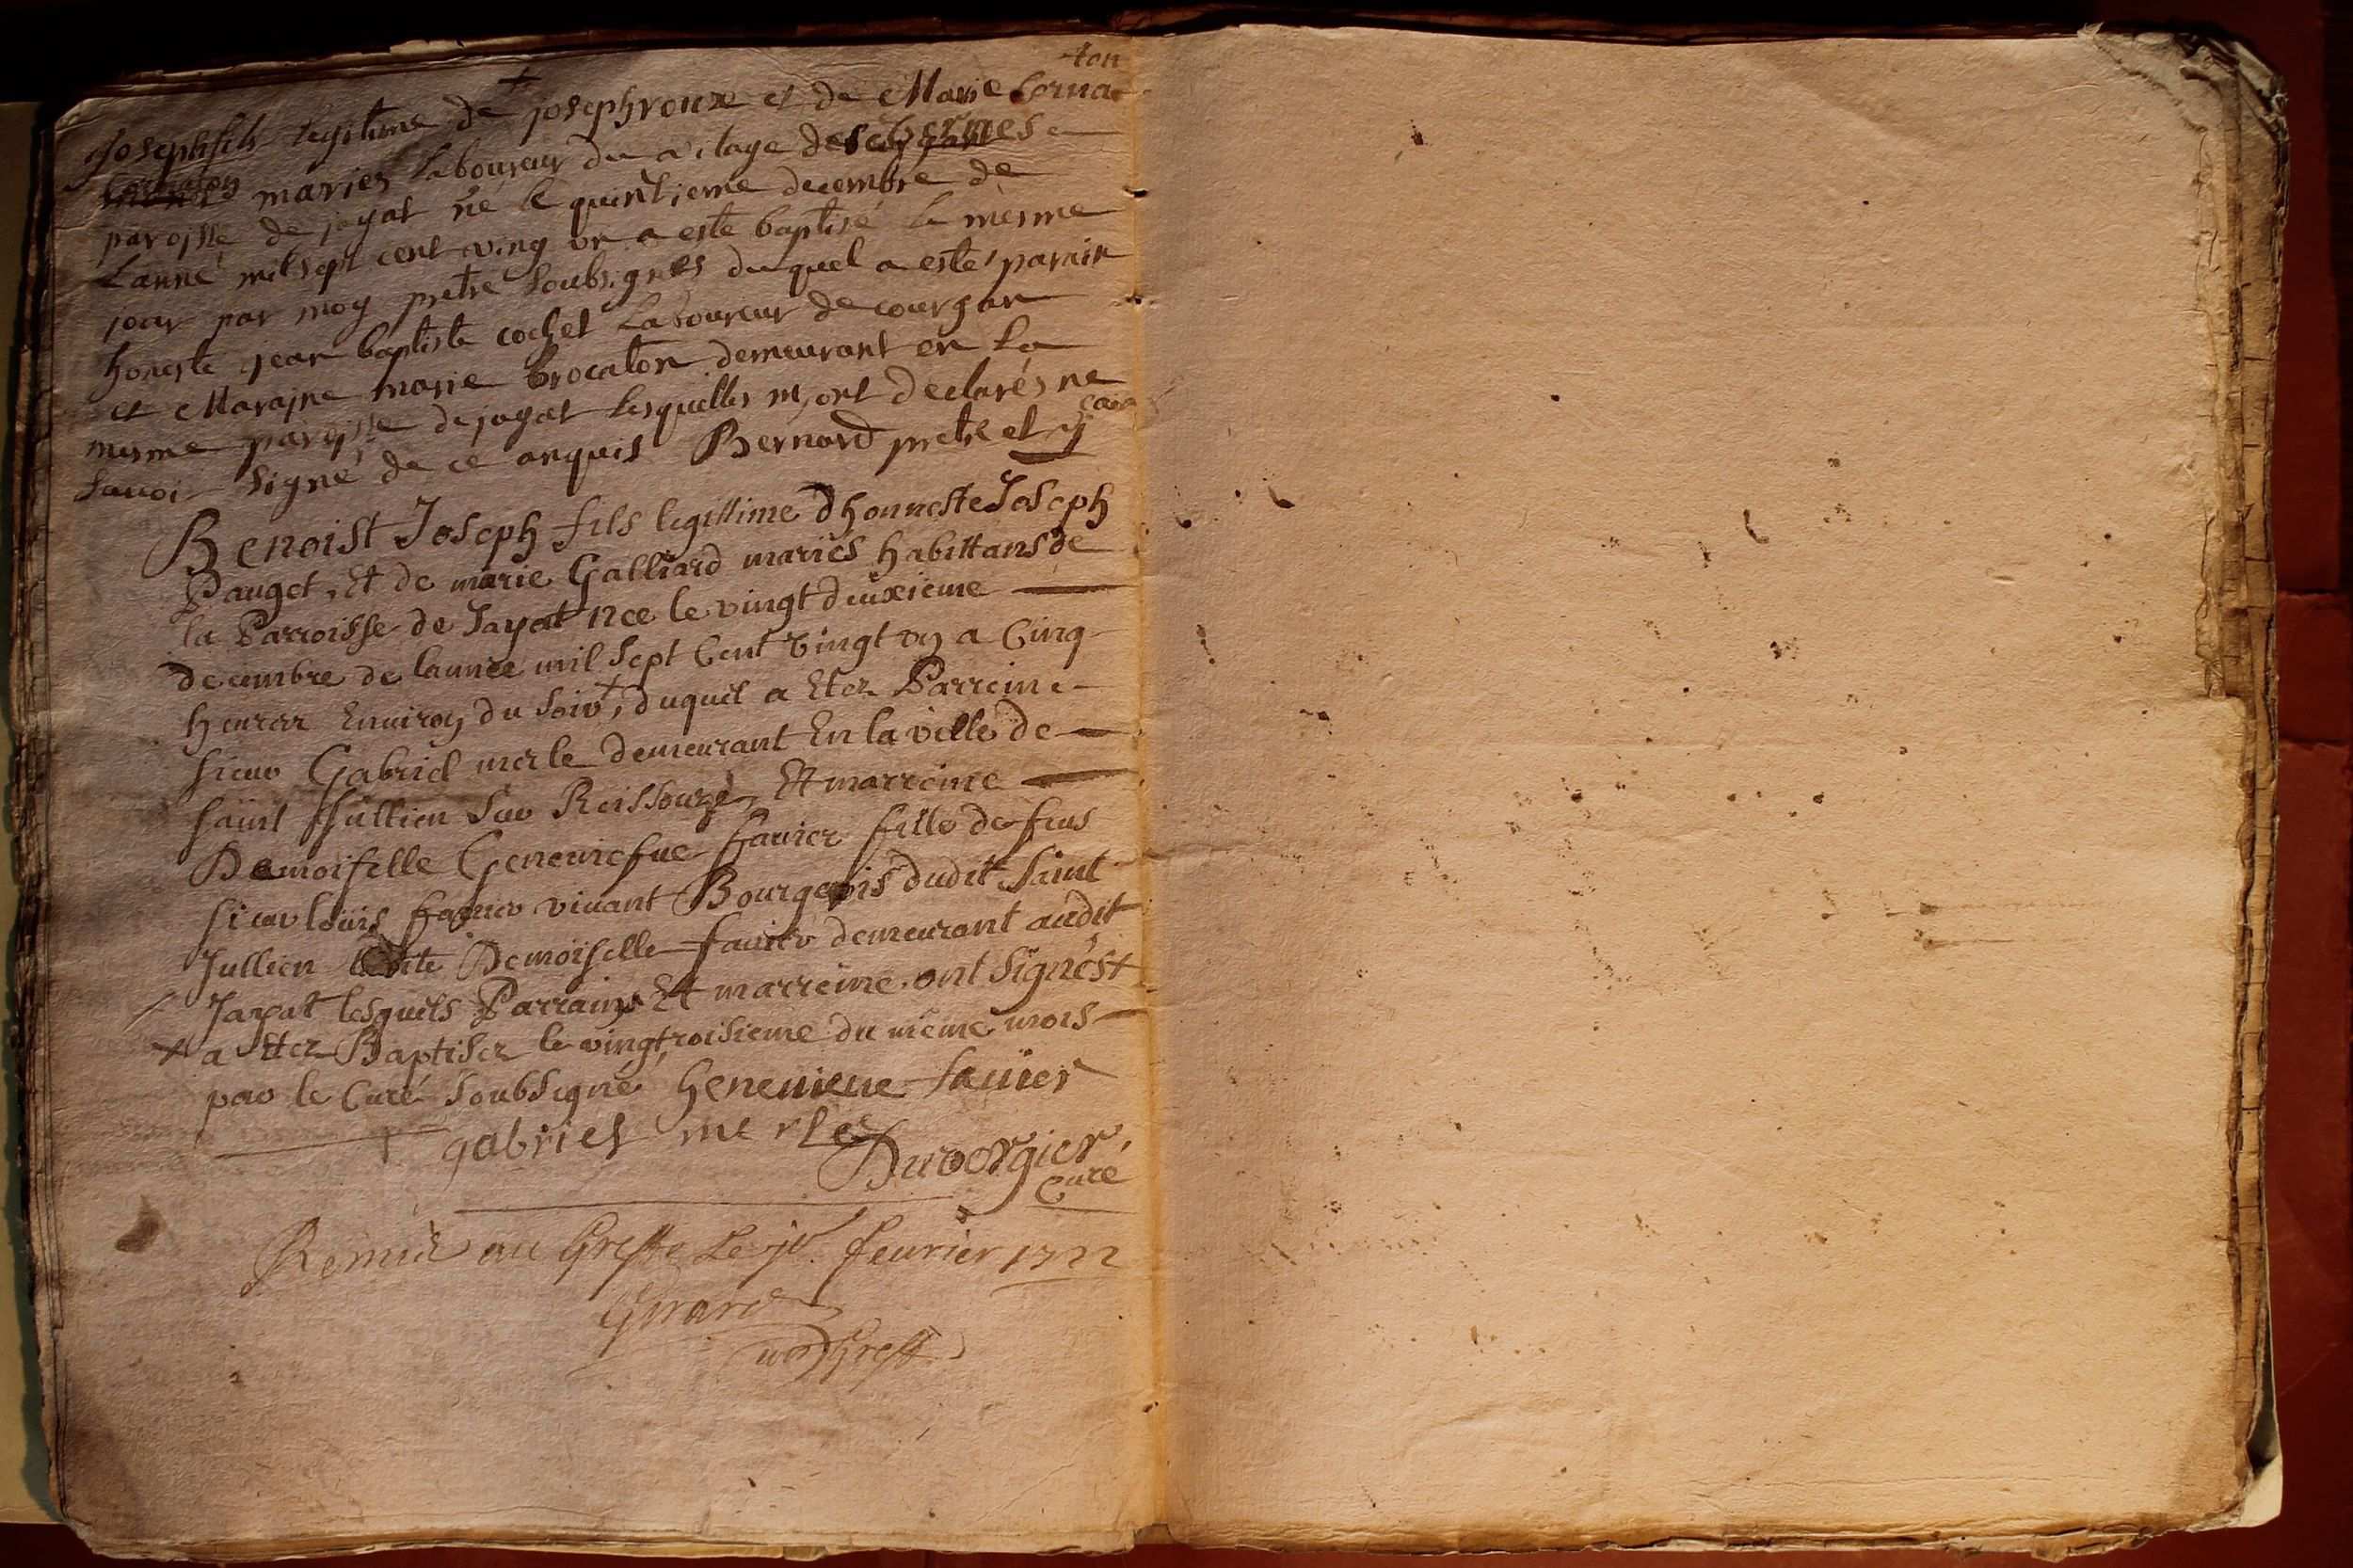 ton
Joseph fils legitime de + joseph roux et de Marie Corna
maries laboureur du vilage des
paroisse de jayat né le quintieme decembre de
Lanné mil sept cent ving un a este baptisé le mesme
jour par moy pretre soubsignes duquel a esté parain
honeste jean baptiste cochet Laboureur de courgan
et Marajne marie brocaton demeurant en la
mesme paroisse de jayat lesquelles m'ont declarés ne
savoir signé de ce anquis Bernard pretre et
Benoist Joseph fils legittime dhonneste Joseph
Pauget, Et de marie Galliard mariés habittans de
la Parroisse de Jayat nee le vingt deuxieme
decembre de lannee mil Sept Cent vingt un a Cinq
heurer Environ du soir +, duquel a Etez Parreine
sieur Gabriel merle demeurant En la ville de
saint Jullien sur Reissouze, Et marreine
Demoiselle Geneuiefue fauier fille de feus
sieur louis fauier viuant Bourgeois dudit saint
Jullien Demoiselle fauier demeurant audit
Jayat lesquels Parrains Et marreine ont signés +
+ a Etez Baptiser le vingtroisieme du meme mois
par le Curé soubsigné heneuieue fauier
gabriel merle
Duvergier
Curé
Remis au Greffe Le feurier 1722
Girard
Greff